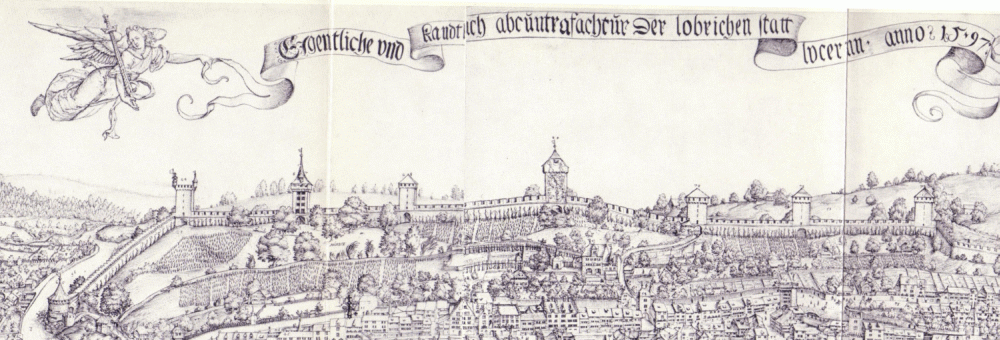 Eigentliche vnd kandtlich abcuntrafachtur Der loblichen statt lucernn. anno: 1597